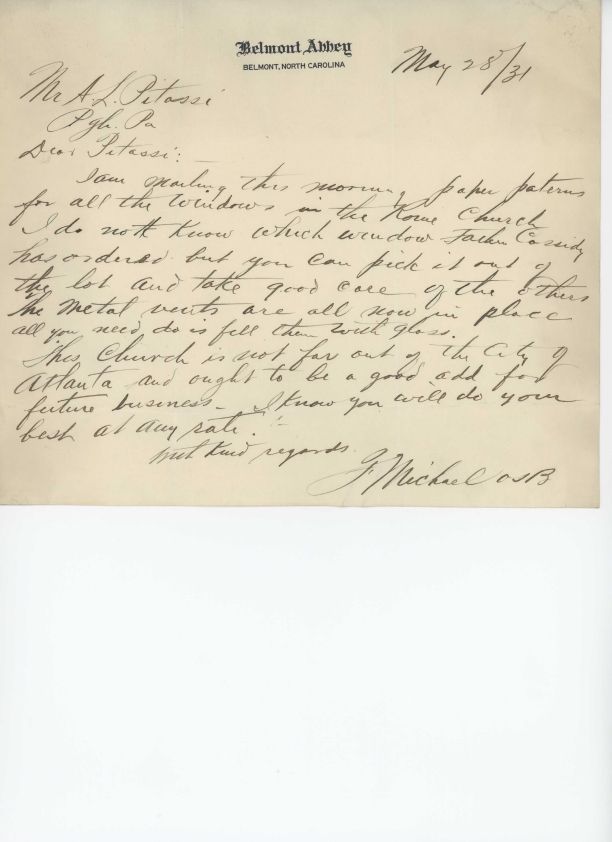 Belmont Abbey
BELMONT, NORTH CAROLINA
May 28/31
Mr A. L. Pitassi
Pgh. Pa
Dear Pitassi: —
I am mailing this morning paper paterns
for all the windows in the Rome Church
I do nott know which window Father Cassidy
has ordered but you can pick it out of
the lot and take good care of the others
The metal vents are all now in place
all you need do is fill them with glass.
This Church is not far out of the City of
Atlanta and ought to be a good add for
future business — I know you will do your
best at any rate. —
With kind regards
F Michael OSB